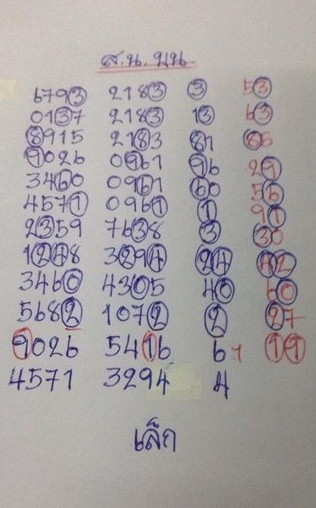 ส.น. บน
6793 2183 3 53
0137 2183 13 63
8915 2183 81 86
9026 0961 96 29
3460 0961 60 56
4571 0961 1 91
2359 7638 3 30
1248 3294 24 42
3460 4305 40 60
5682 1072 2 27
9026 5416 61 11
4571 3294 4
เล็ก